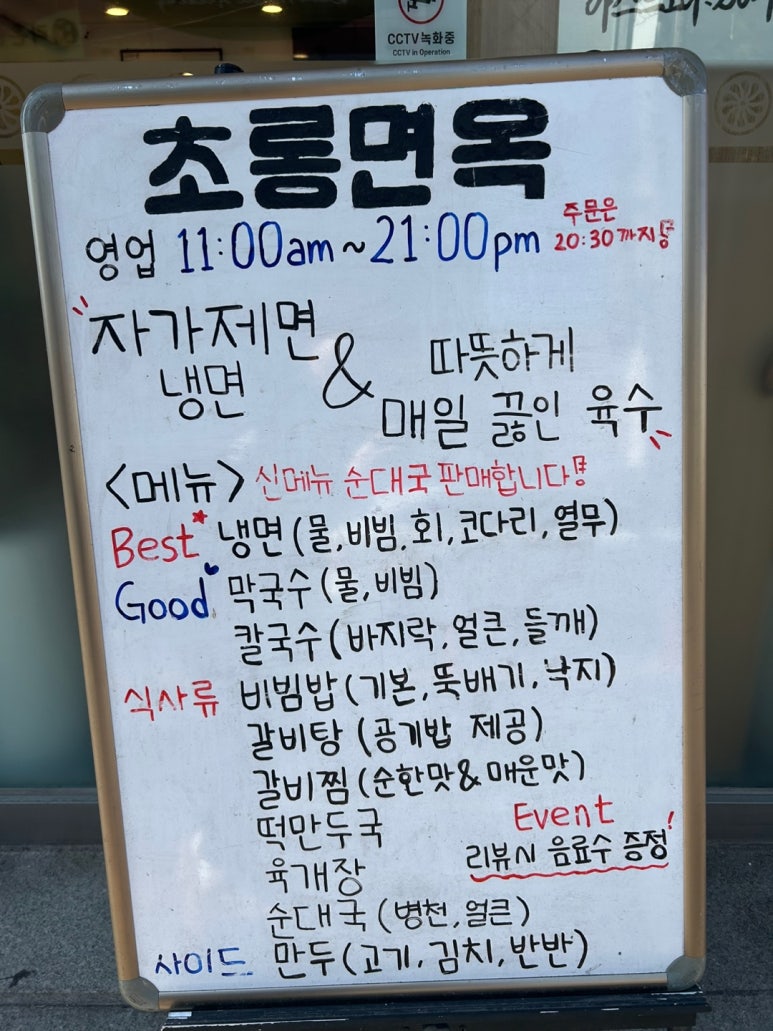 CCTV녹화중
CCTV in Operation
초롱면옥
영업 11:00am~21:00pm
주문은
20:30까지!!
자가제면
냉면
&
따뜻하게
매일 끓인 육수
<메뉴> 신메뉴 순대국 판매합니다!!
Best 냉면(물,비빔,회,코다리,열무)
Good 막국수(물,비빔)
칼국수(바지락,얼큰,들깨)
식사류 비빔밥(기본,뚝배기,낙지)
갈비탕(공기밥 제공)
갈비찜(순한맛&매운맛)
떡만두국
육개장
Event!
리뷰시 음료수 증정
순대국(병천,얼큰)
사이드 만두(고기,김치,반반)